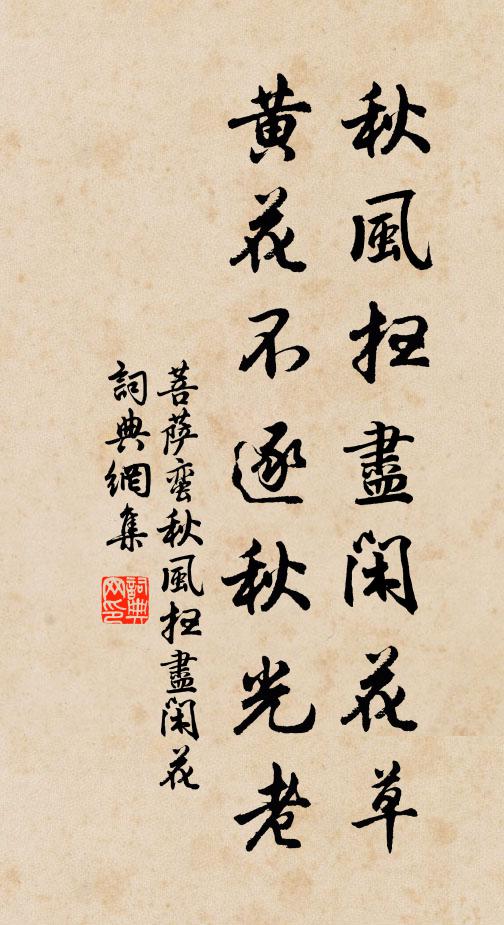 秋風扫盡閑花草
黄花不逐秋光老
菩萨蛮秋風扫盡閑花
詞典網集
詞典网印